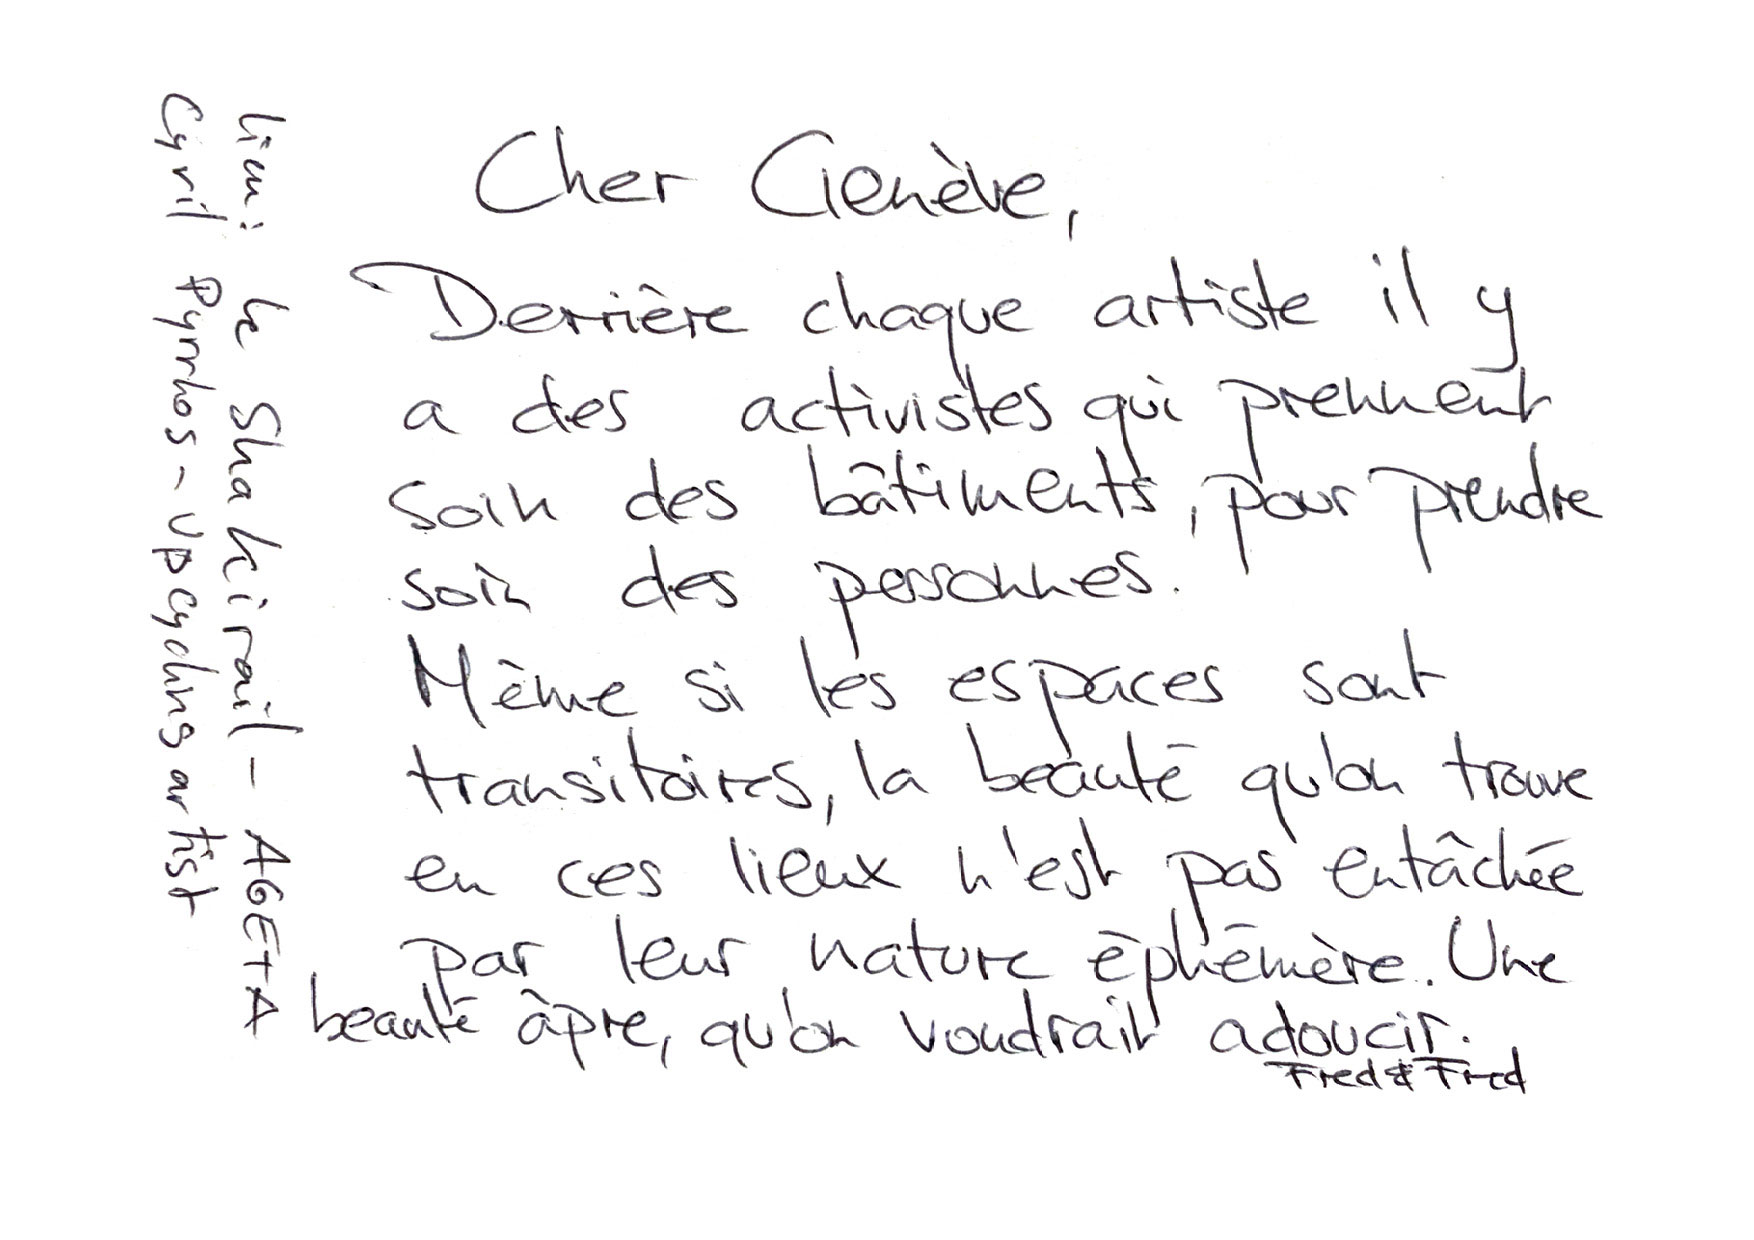 Cher Genève,
Derrière chaque artiste il y
a des activistes qui prennent
soin des bâtiments, pour prendre
soin des personnes.
Même si les espaces sont
transitoires, la beauté qu'on trouve
en ces lieux n'est pas entâchée
par leur nature éphémère. Une
beauté âpre, qu'on voudrait adoucir.
Fred & Fred
lieu: le Shakirail - AGETA
Cyril Pyrrhos - upcycling artist